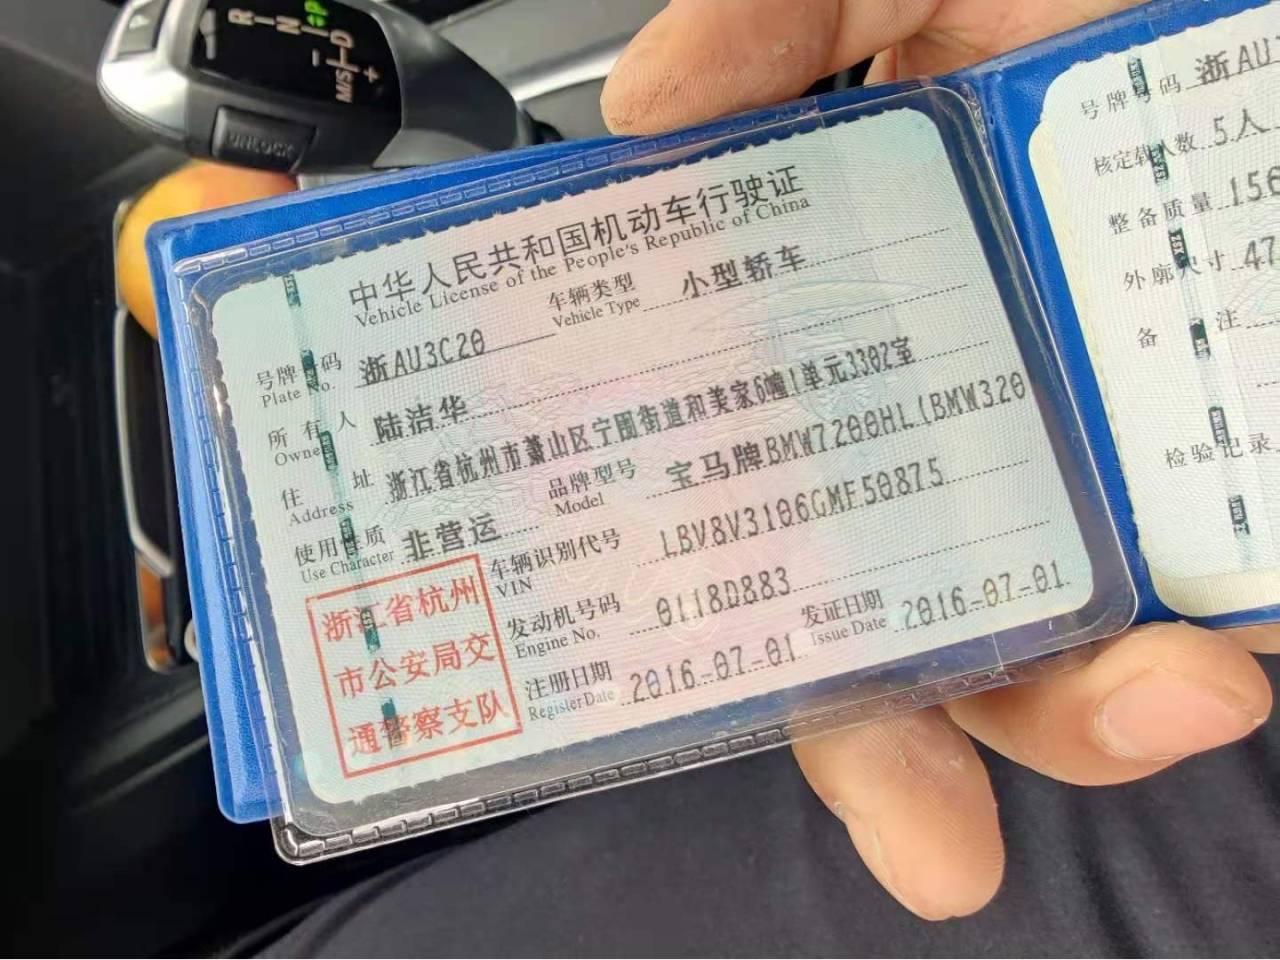 P
R
N
eP
D
M/S
+
-
UNLOCK
中华人民共和国机动车行驶证
Vehicle License of the People's Republic of China
号牌号码 浙AU3C20 车辆类型 小型轿车
Plate No. Vehicle Type
所有人 陆洁华
Owner
住址 浙江省杭州市萧山区宁围街道和美家6幢1单元3302室
Address
使用性质 非营运 品牌型号 宝马牌BMW7200HL(BMW320
Use Character Model
车辆识别代号 LBV8V3106GMF50875
VIN
发动机号码 0118D883 发证日期 2016-07-01
Engine No. Issue Date
注册日期 2016-07-01
Register Date
浙江省杭州
市公安局交
通警察支队
号牌号码 浙AU
核定载人数 5人
整备质量 156
外廓尺寸 47
备注
检验记录